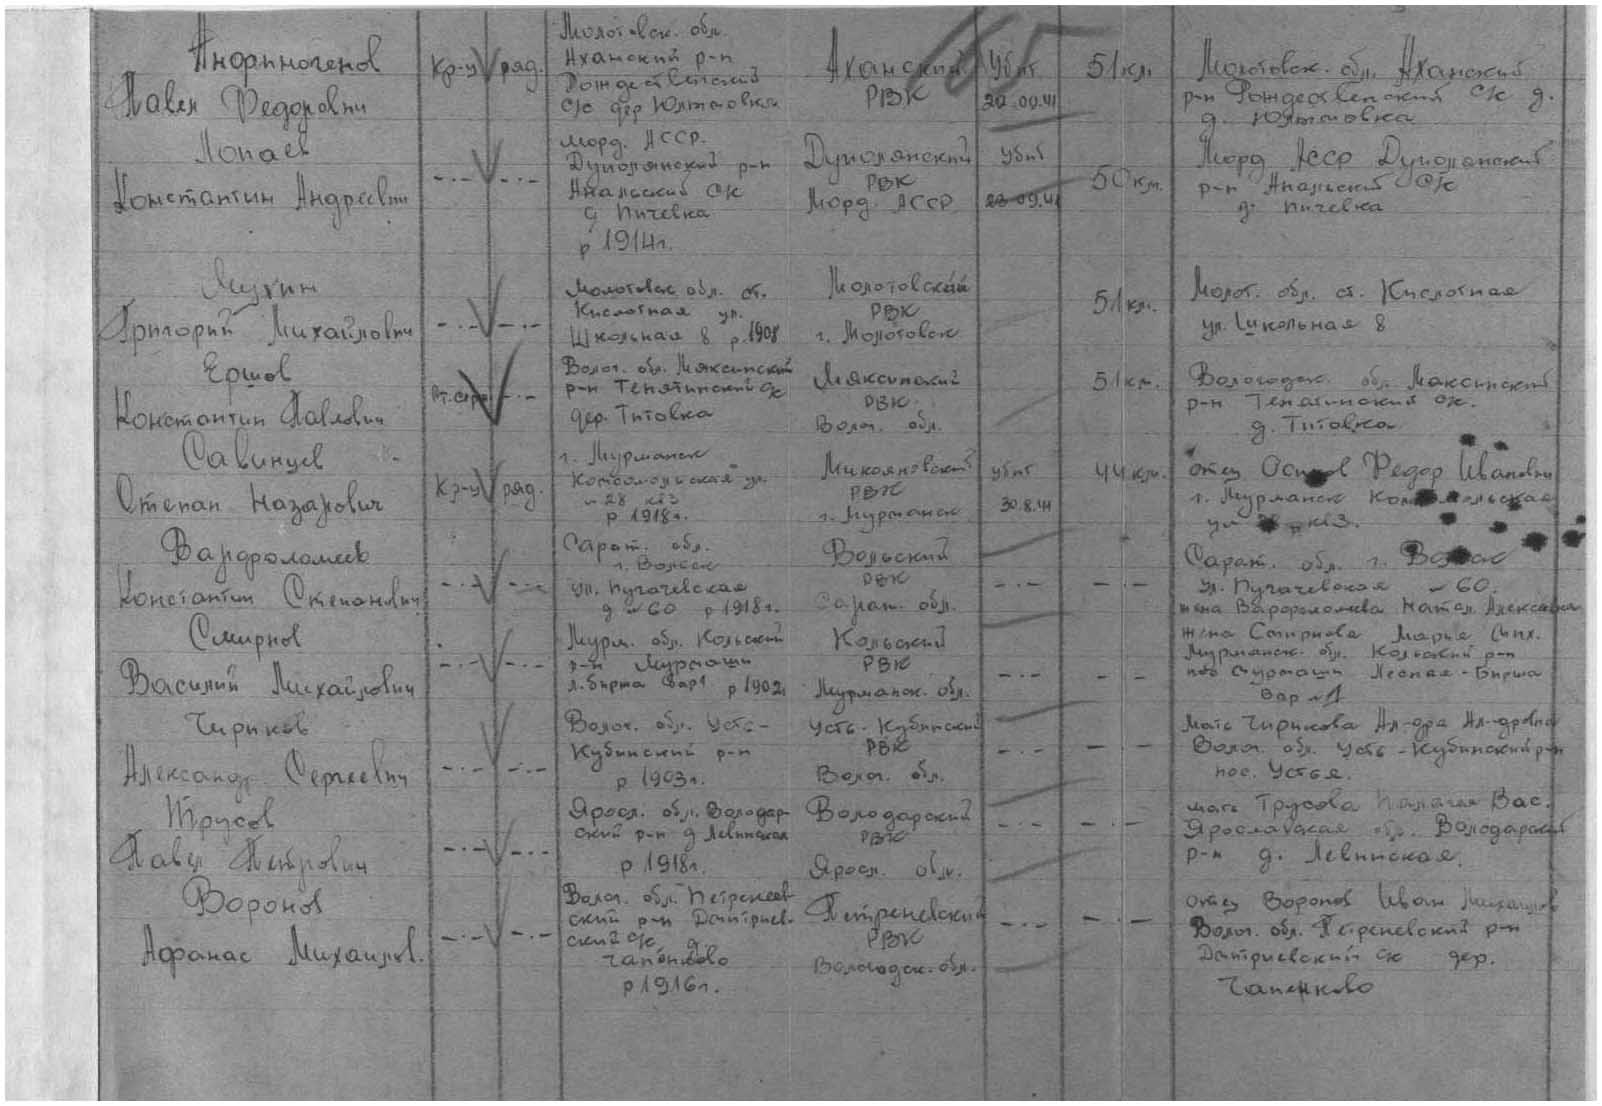 Андриногенов
Павел Федорович
Кр-ц ряд.
Молотовск. обл.
Аханский р-н
Рождественский
с/с дер Юлтыовка
Аханский
РВК
Убит
22.09.41
51 км.
Молотовск. обл. Аханский
р-н Рождественский с/с д.
Лопаев
Константин Андреевич
-·- -·-
Морд. АССР.
р-н
Анальский с/с
д Пичевка
р 1914г.
РВК
Морд. АССР
убит
09.41
50 км.
Морд АССР
р-н Анальский с/с
д. Пичевка
Мухин
Григорий Михайлович
-·- -·-
Молотовск обл. ст.
Кислотная ул.
Школьная 8 р.1908
Молотовский
РВК
г. Молотовск
51 км.
Молот. обл. ст. Кислотная
ул. Школьная 8
Ершов
Константин Павлович
-·-
Волог. обл. Мяксинский
р-н Тенятинский с/с
дер. Титовка
Мяксинский
РВК
Волог. обл.
51 км.
Вологодск. обл. Максинский
р-н Тенятинский с/с.
д. Титовка
Савинцев
Степан Назарович
Кр-ц ряд.
г. Мурманск
Комсомольская ул.
№ 28 кв 3
р 1918г.
Микояновский
РВК
г. Мурманск
убит
30.8.41
44 км.
отец Федор Иванович
г. Мурманск
ул кв 3.
Варфоломеев
Константин Степанович
-·- -·-
Сарат. обл.
г. Вольск
ул. Пугачевская
д № 60 р 1918г.
Вольский
РВК
Сарат. обл.
-·- -·-
Сарат. обл. г. Вольск
ул. Пугачевская № 60.
жена Варфоломеева Натал. Алексеевна
Смирнов
Василий Михайлович
-·- -·-
Мурм. обл. Кольский
р-н Мурмаши
л.биржа бар1 р 1902г
Кольский
РВК
Мурманск. обл.
-·- - -
жена Смирнова Мария Мих.
Мурманск. обл. Кольский р-н
пос Мурмаши Лесная-Биржа
бар №1
Чириков
Александр Сергеевич
-·- -·-
Волог. обл. Усть-
Кубинский р-н
р 1903г.
Усть-Кубинский
РВК
Волог. обл.
-·- -·-
мать Чирикова Ал-дра Ал-дровна
Волог. обл. Усть-Кубинский р-н
пос. Устья.
Трусов
Павел Петрович
-·- -·-
Яросл. обл. Володар-
ский р-н д Левинская
р 1918г.
Володарский
РВК
Яросл. обл.
-·- -·-
мать Трусова Палагея Вас.
Ярославская обл. Володарский
р-н д. Левинская.
Воронов
Афанас Михайлов.
-·- -·-
Волог. обл. Петренев-
ский р-н Дмитриев-
ский с/с д.
Чапенково
р 1916г.
Петреневский
РВК
Вологодск. обл.
-·- -·-
отец Воронов Иван Михайлов
Волог. обл. Петреневский р-н
Дмитриевский с/с дер.
Чапенково